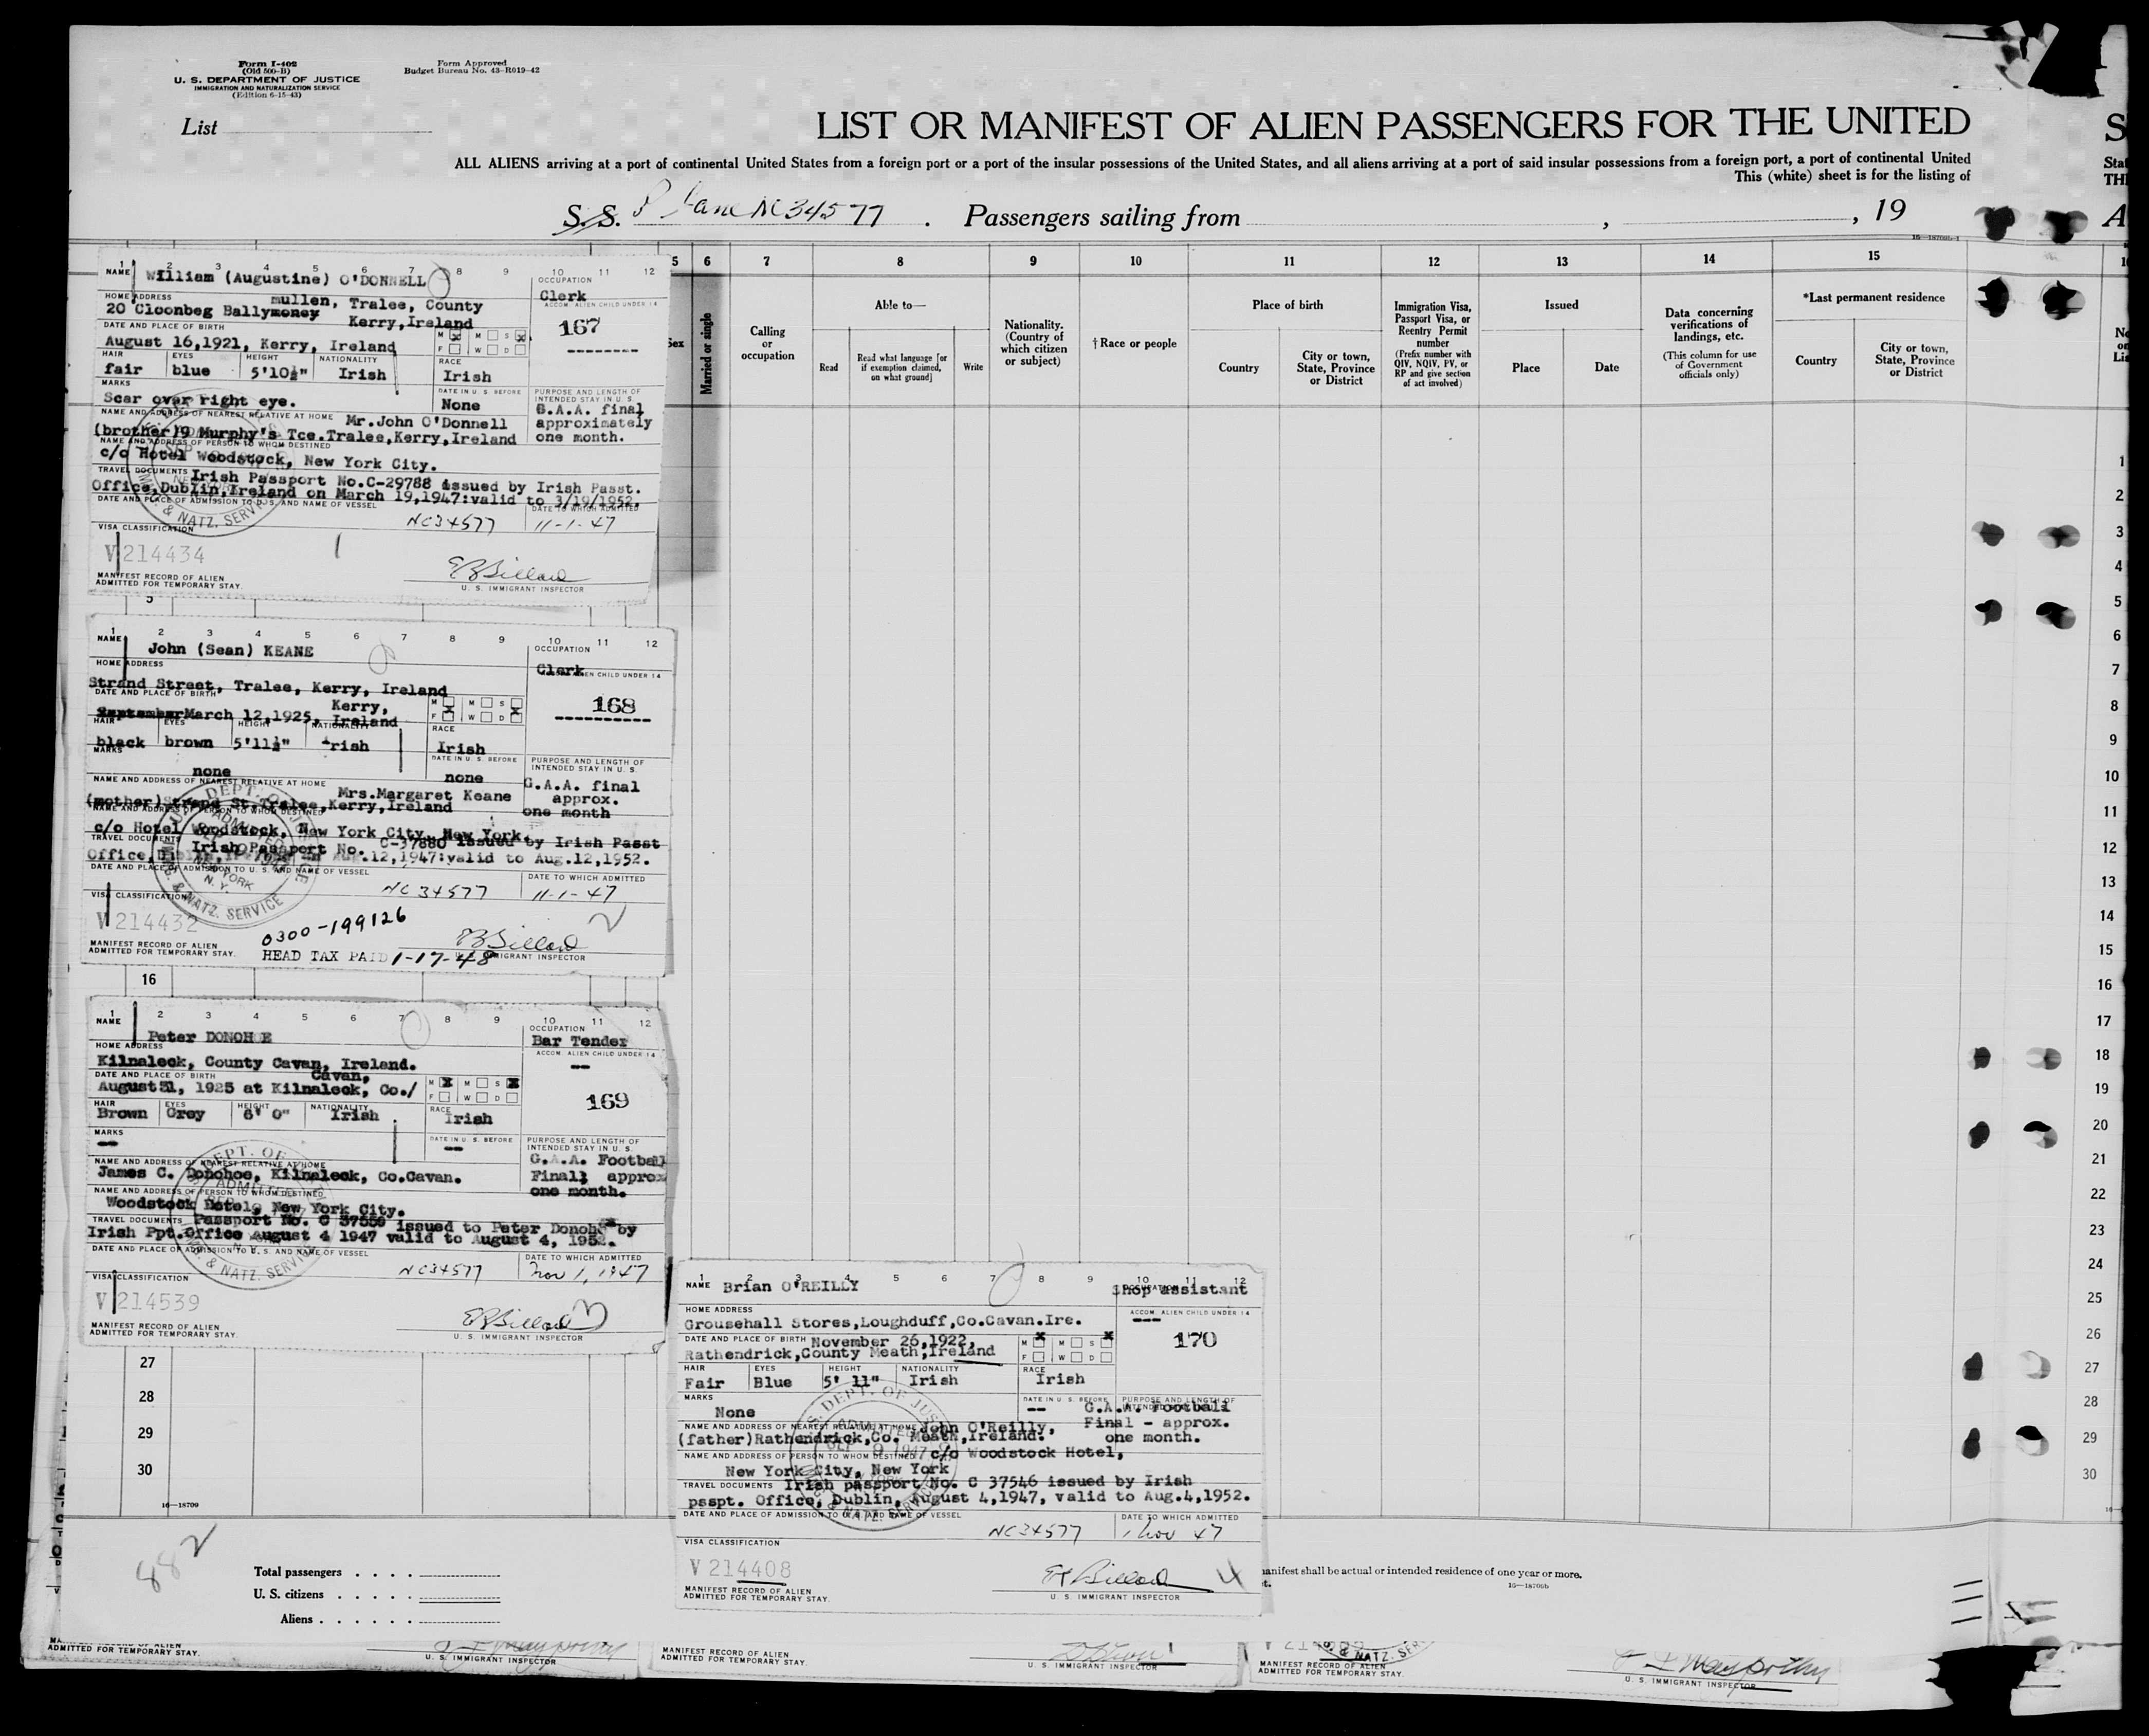 Form I-402
(Old 500-B)
U. S. DEPARTMENT OF JUSTICE
IMMIGRATION AND NATURALIZATION SERVICE
(Edition 6-15-43)
Form Approved
Budget Bureau No. 43-R019-42
List
LIST OR MANIFEST OF ALIEN PASSENGERS FOR THE UNITED
S
ALL ALIENS arriving at a port of continental United States from a foreign port or a port of the insular possessions of the United States, and all aliens arriving at a port of said insular possessions from a foreign port, a port of continental United
Stat
This (white) sheet is for the listing of
TH
S.S. Plane NC34577 . Passengers sailing from , , 19
A
5 6 7 8 9 10 11 12 13 14 15
Sex
Married or single
Calling or occupation
Able to—
Read
Read what language [or if exemption claimed, on what ground]
Write
Nationality. (Country of which citizen or subject)
†Race or people
Place of birth
Country
City or town, State, Province or District
Immigration Visa, Passport Visa, or Reentry Permit number
(Prefix number with QIV, NQIV, PV, or RP and give section of act involved)
Issued
Place
Date
Data concerning verifications of landings, etc.
(This column for use of Government officials only)
*Last permanent residence
Country
City or town, State, Province or District
1 2 3 4 5 6 7 8 9 10 11 12
NAME William (Augustine) O'DONNELL
OCCUPATION Clerk
HOME ADDRESS mullen, Tralee, County
20 Cloonbeg Ballymoney Kerry,Ireland
ACCOM. ALIEN CHILD UNDER 14
167
DATE AND PLACE OF BIRTH
August 16,1921, Kerry, Ireland
M M S
F W D
HAIR EYES HEIGHT NATIONALITY RACE
fair blue 5'10½" Irish Irish
MARKS
Scar over right eye.
DATE IN U. S. BEFORE
None
PURPOSE AND LENGTH OF INTENDED STAY IN U. S.
G.A.A. final
approximately
one month.
NAME AND ADDRESS OF NEAREST RELATIVE AT HOME Mr.John O'Donnell
(brother)9 Murphy's Tce.Tralee,Kerry,Ireland
NAME AND ADDRESS OF PERSON TO WHOM DESTINED
c/o Hotel Woodstock, New York City.
TRAVEL DOCUMENTS Irish Passport No.C-29788 issued by Irish Passt.
Office,Dublin,Ireland on March 19,1947:valid to 3/19/1952.
DATE AND PLACE OF ADMISSION TO U. S. AND NAME OF VESSEL
DATE TO WHICH ADMITTED
NC34577 11-1-47
VISA CLASSIFICATION
V 214434
1
E R Billard
MANIFEST RECORD OF ALIEN
ADMITTED FOR TEMPORARY STAY.
U. S. IMMIGRANT INSPECTOR
& NATZ. SERVICE
5
1 2 3 4 5 6 7 8 9 10 11 12
NAME John (Sean) KEANE
OCCUPATION Clerk
HOME ADDRESS
Strand Street, Tralee, Kerry, Ireland
ACCOM. ALIEN CHILD UNDER 14
168
DATE AND PLACE OF BIRTH Kerry,
September March 12,1925, Ireland
M M S
F W D
HAIR EYES HEIGHT NATIONALITY RACE
black brown 5'11½" Irish Irish
MARKS
none
DATE IN U. S. BEFORE
none
PURPOSE AND LENGTH OF INTENDED STAY IN U. S.
G.A.A. final
approx.
one month
NAME AND ADDRESS OF NEAREST RELATIVE AT HOME
Mrs.Margaret Keane
(mother)Strand St.Tralee,Kerry,Ireland
NAME AND ADDRESS OF PERSON TO WHOM DESTINED
c/o Hotel Woodstock, New York City, New York.
TRAVEL DOCUMENTS Irish Passport No. C-37880 issued by Irish Passt
Office,Dublin,Ireland on Aug.12,1947:valid to Aug.12,1952.
DATE AND PLACE OF ADMISSION TO U. S. AND NAME OF VESSEL
DATE TO WHICH ADMITTED
NC34577 11-1-47
VISA CLASSIFICATION
V 214432
0300-199126
2
E R Billard
MANIFEST RECORD OF ALIEN
ADMITTED FOR TEMPORARY STAY.
HEAD TAX PAID 1-17-48
U. S. IMMIGRANT INSPECTOR
DEPT. OF JUSTICE
ADMITTED
NEW YORK
N. Y.
& NATZ. SERVICE
16
1 2 3 4 5 6 7 8 9 10 11 12
NAME Peter DONOHOE
OCCUPATION Bar Tender
HOME ADDRESS
Kilnaleck, County Cavan, Ireland.
ACCOM. ALIEN CHILD UNDER 14
--
169
DATE AND PLACE OF BIRTH Cavan,
August 31, 1925 at Kilnaleck, Co./
M M S
F W D
HAIR EYES HEIGHT NATIONALITY RACE
Brown Grey 6' 0" Irish Irish
MARKS
--
DATE IN U. S. BEFORE
--
PURPOSE AND LENGTH OF INTENDED STAY IN U. S.
G.A.A. Football
Final; approx
one month.
NAME AND ADDRESS OF NEAREST RELATIVE AT HOME
James C. Donohoe, Kilnaleck, Co.Cavan.
NAME AND ADDRESS OF PERSON TO WHOM DESTINED
Woodstock Hotel, New York City.
TRAVEL DOCUMENTS Passport No. C 37559 issued to Peter Donohoe by
Irish Ppt.Office August 4 1947 valid to August 4, 1952.
DATE AND PLACE OF ADMISSION TO U. S. AND NAME OF VESSEL
DATE TO WHICH ADMITTED
NC34577 Nov 1, 1947
VISA CLASSIFICATION
V 214539
E R Billard 3
MANIFEST RECORD OF ALIEN
ADMITTED FOR TEMPORARY STAY.
U. S. IMMIGRANT INSPECTOR
DEPT. OF
ADMITTED
& NATZ. SERVICE
27
28
29
30
16—18709
1 2 3 4 5 6 7 8 9 10 11 12
NAME Brian O'REILLY
OCCUPATION Shop assistant
HOME ADDRESS
Grousehall Stores,Loughduff,Co.Cavan.Ire.
ACCOM. ALIEN CHILD UNDER 14
---
170
DATE AND PLACE OF BIRTH November 26,1922,
Rathendrick,County Meath,Ireland
M M S
F W D
HAIR EYES HEIGHT NATIONALITY RACE
Fair Blue 5' 11" Irish Irish
MARKS
None
DATE IN U. S. BEFORE
--
PURPOSE AND LENGTH OF INTENDED STAY IN U. S.
G.A.A. Football
Final - approx.
one month.
NAME AND ADDRESS OF NEAREST RELATIVE AT HOME John O'Reilly,
(father)Rathendrick,Co. Meath,Ireland.
NAME AND ADDRESS OF PERSON TO WHOM DESTINED c/o Woodstock Hotel,
New York City, New York
TRAVEL DOCUMENTS Irish passport No. C 37546 issued by Irish
psspt. Office, Dublin, August 4,1947, valid to Aug.4,1952.
DATE AND PLACE OF ADMISSION TO U. S. AND NAME OF VESSEL
DATE TO WHICH ADMITTED
NC34577 1 Nov 47
VISA CLASSIFICATION
V 214408
E R Billard 4
MANIFEST RECORD OF ALIEN
ADMITTED FOR TEMPORARY STAY.
U. S. IMMIGRANT INSPECTOR
DEPT. OF JUS
SEP 9 1947
& NATZ. SERVICE
1
2
3
4
5
6
7
8
9
10
11
12
13
14
15
16
17
18
19
20
21
22
23
24
25
26
27
28
29
30
882
Total passengers
U. S. citizens
Aliens
manifest shall be actual or intended residence of one year or more.
16—18709b
ADMITTED FOR TEMPORARY STAY.
U. S. IMMIGRANT INSPECTOR
MANIFEST RECORD OF ALIEN
ADMITTED FOR TEMPORARY STAY.
U. S. IMMIGRANT INSPECTOR
& NATZ. SER
MANIFEST RECORD OF ALIEN
ADMITTED FOR TEMPORARY STAY.
U. S. IMMIGRANT INSPECTOR